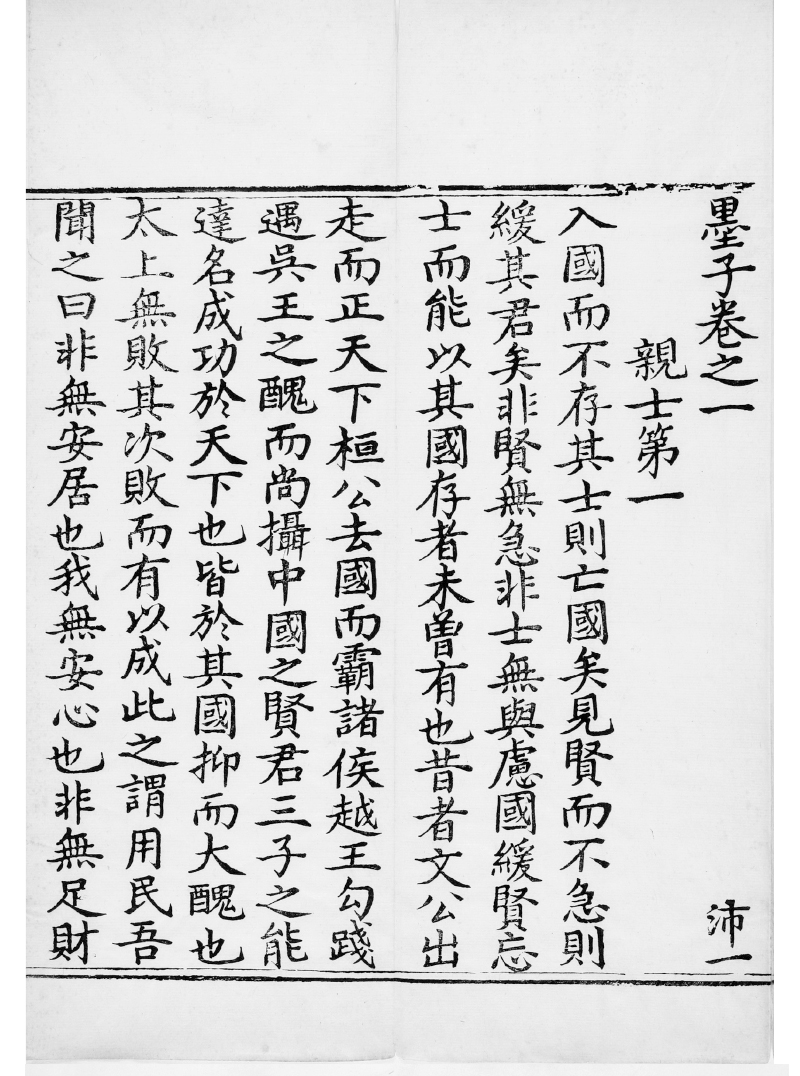 墨子卷之一
沛一
親士第一
入國而不存其士則亡國矣見賢而不急則
緩其君矣非賢無急非士無與慮國緩賢忘
士而能以其國存者未曾有也昔者文公出
走而正天下桓公去國而霸諸侯越王勾踐
遇吳王之醜而尚攝中國之賢君三子之能
達名成功於天下也皆於其國抑而大醜也
太上無敗其次敗而有以成此之謂用民吾
聞之曰非無安居也我無安心也非無足財